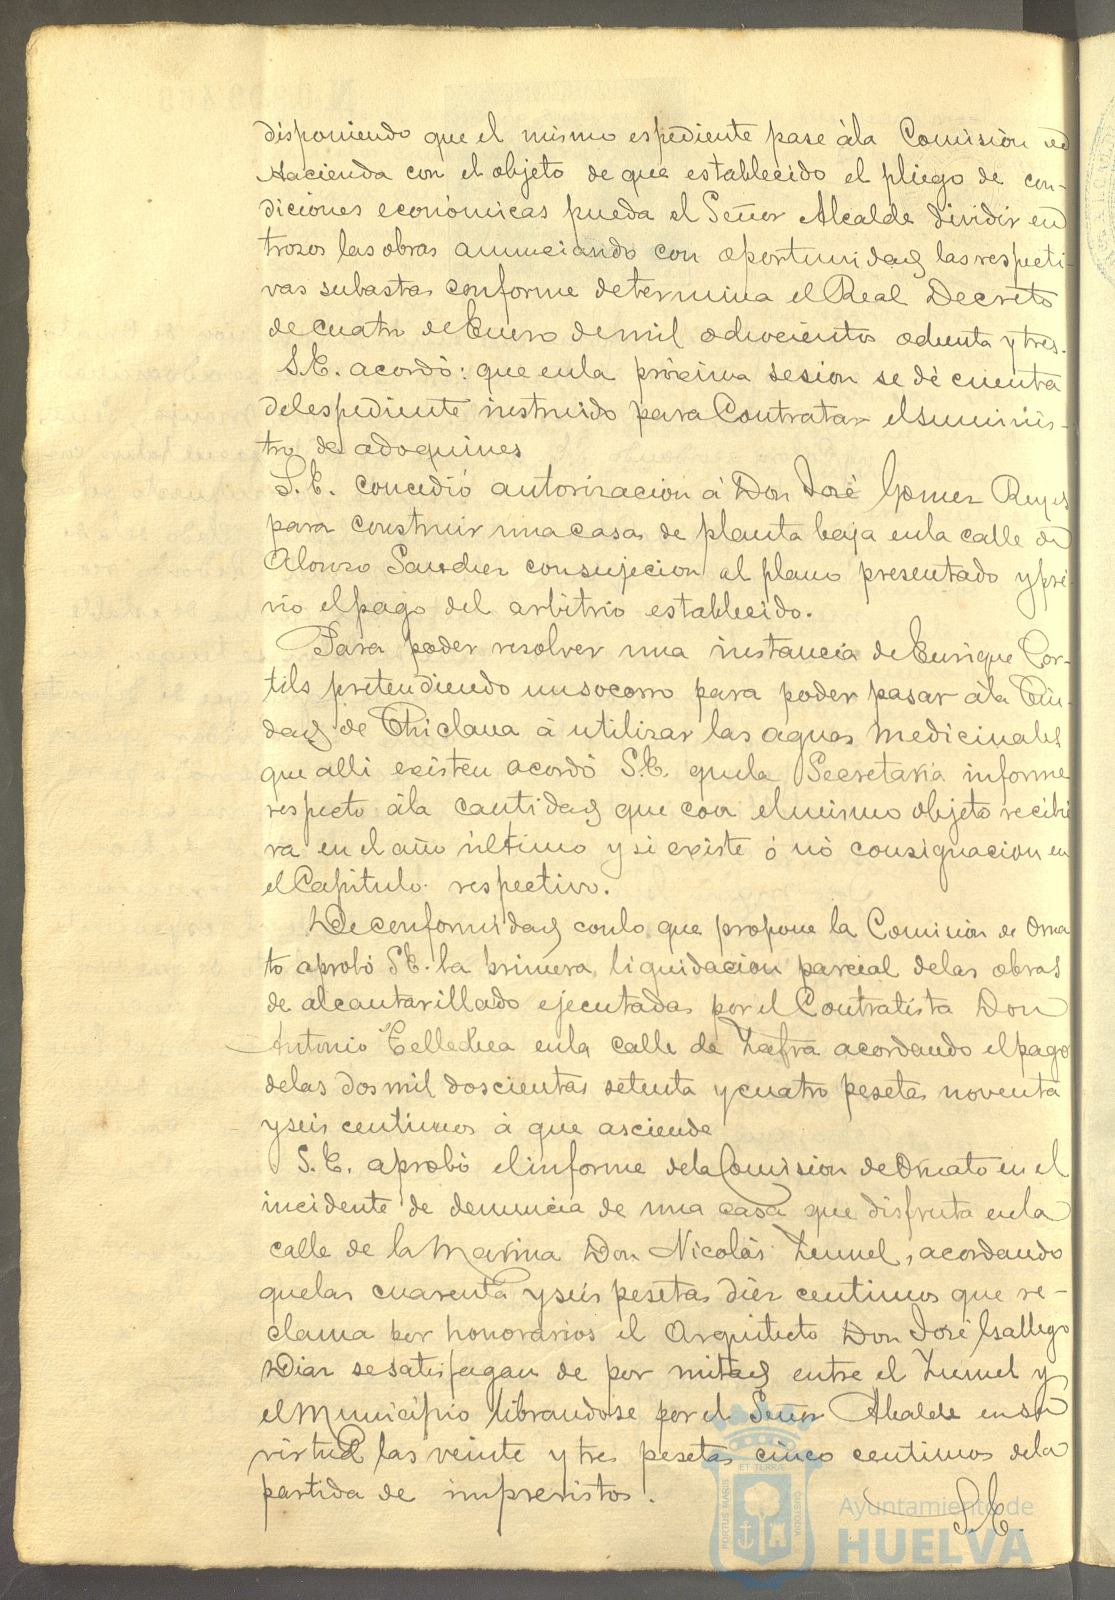 disponiendo que el mismo espediente pase àla Comisiòn de
Hacienda con el objeto de que establecido el pliego de con-
diciones econòmicas pueda el Señor Alcalde dividir en
trozos las obras anunciando con oportunidad las respecti-
vas subastas conforme determina el Real Decreto
de cuatro de Enero de mil ochocientos ochenta y tres.
S.E. acordò: que enla pròxima sesion se dè cuenta
del espediente instruido para Contratar el suminis-
tro de adoquines
S.E. concediò autorizacion à Don Josè Gomez Reyes
para construir una casa de planta baja enla calle de
Alonso Sanchez consujecion al plano presentado y pré
vio el pago del arbitrio establecido.
Para poder resolver una instancia de Enrique Cor-
tils pretendiendo unsocorro para poder pasar àla Ciu-
dad de Chiclana à utilizar las aguas medicinales
que alli existen acordò S.E. quela Secretaria informe
respecto àla cantidad que con elmismo objeto recibie
ra en el año ùltimo y si existe ò nò consignacion en
el Capitulo respectivo.
De conformidad conlo que propone la Comision de Orna
to aprobò S.E. la primera liquidacion parcial delas obras
de alcantarillado ejecutadas por el Contratista Don
Antonio Tellechea enla calle de Zafra acordando el pago
delas dos mil doscientas setenta y cuatro pesetas noventa
y seis centimos à que asciende
S.E. aprobò el informe dela Comision de Ornato en el
incidente de denuncia de una casa que disfruta enla
calle de la Marina Don Nicolàs Zunnel, acordando
quelas cuarenta y seis pesetas dièz centimos que re-
clama por honorarios el Arquitecto Don Josè Gallego
Diaz sesatisfagan de por mitad entre el Zunnel y
el Municipio librandose por el Señor Alcalde en su
virtud las veinte y tres pesetas cinco centimos dela
partida de imprevistos.
S.E.
Ayuntamiento de
HUELVA